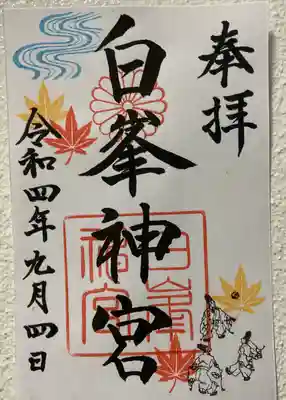 奉拝
白峯神宮
白峯神宮
令和四年九月四日